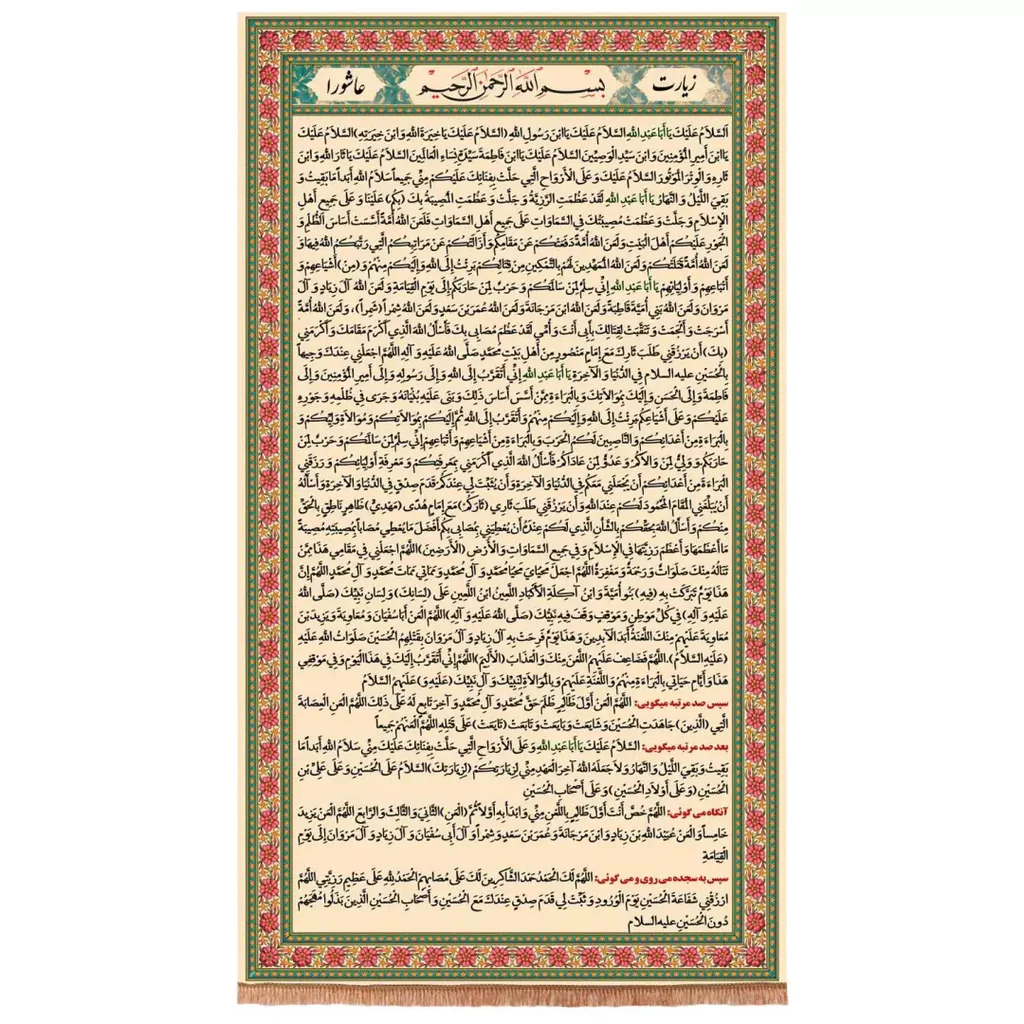 زیارت
بسم الله الرحمن الرحیم
عاشورا
اَلسَّلاَمُ عَلَيْكَ يَا أَبَا عَبْدِ اللهِ السَّلاَمُ عَلَيْكَ يَا ابْنَ رَسُولِ اللهِ (السَّلاَمُ عَلَيْكَ يَا خِيَرَةَ اللهِ وَ ابْنَ خِيَرَتِهِ) السَّلاَمُ عَلَيْكَ
يَا ابْنَ أَمِيرِ الْمُؤْمِنِينَ وَ ابْنَ سَيِّدِ الْوَصِيِّينَ السَّلاَمُ عَلَيْكَ يَا ابْنَ فَاطِمَةَ سَيِّدَةِ نِسَاءِ الْعَالَمِينَ السَّلاَمُ عَلَيْكَ يَا ثَارَ اللهِ وَ ابْنَ
ثَارِهِ وَ الْوِتْرَ الْمَوْتُورَ السَّلاَمُ عَلَيْكَ وَ عَلَى الْأَرْوَاحِ الَّتِي حَلَّتْ بِفِنَائِكَ عَلَيْكُمْ مِنِّي جَمِيعاً سَلاَمُ اللهِ أَبَداً مَا بَقِيتُ وَ
بَقِيَ اللَّيْلُ وَ النَّهَارُ يَا أَبَا عَبْدِ اللهِ لَقَدْ عَظُمَتِ الرَّزِيَّةُ وَ جَلَّتْ وَ عَظُمَتِ الْمُصِيبَةُ بِكَ (بِكُمْ) عَلَيْنَا وَ عَلَى جَمِيعِ أَهْلِ
الْإِسْلاَمِ وَ جَلَّتْ وَ عَظُمَتْ مُصِيبَتُكَ فِي السَّمَاوَاتِ عَلَى جَمِيعِ أَهْلِ السَّمَاوَاتِ فَلَعَنَ اللهُ أُمَّةً أَسَّسَتْ أَسَاسَ الظُّلْمِ وَ
الْجَوْرِ عَلَيْكُمْ أَهْلَ الْبَيْتِ وَ لَعَنَ اللهُ أُمَّةً دَفَعَتْكُمْ عَنْ مَقَامِكُمْ وَ أَزَالَتْكُمْ عَنْ مَرَاتِبِكُمُ الَّتِي رَتَّبَكُمُ اللهُ فِيهَا وَ
لَعَنَ اللهُ أُمَّةً قَتَلَتْكُمْ وَ لَعَنَ اللهُ الْمُمَهِّدِينَ لَهُمْ بِالتَّمْكِينِ مِنْ قِتَالِكُمْ بَرِئْتُ إِلَى اللهِ وَ إِلَيْكُمْ مِنْهُمْ وَ (مِنْ) أَشْيَاعِهِمْ وَ
أَتْبَاعِهِمْ وَ أَوْلِيَائِهِمْ يَا أَبَا عَبْدِ اللهِ إِنِّي سِلْمٌ لِمَنْ سَالَمَكُمْ وَ حَرْبٌ لِمَنْ حَارَبَكُمْ إِلَى يَوْمِ الْقِيَامَةِ وَ لَعَنَ اللهُ آلَ زِيَادٍ وَ آلَ
مَرْوَانَ وَ لَعَنَ اللهُ بَنِي أُمَيَّةَ قَاطِبَةً وَ لَعَنَ اللهُ ابْنَ مَرْجَانَةَ وَ لَعَنَ اللهُ عُمَرَ بْنَ سَعْدٍ وَ لَعَنَ اللهُ شِمْراً (شَمِراً)، وَ لَعَنَ اللهُ أُمَّةً
أَسْرَجَتْ وَ أَلْجَمَتْ وَ تَنَقَّبَتْ لِقِتَالِكَ بِأَبِي أَنْتَ وَ أُمِّي لَقَدْ عَظُمَ مُصَابِي بِكَ فَأَسْأَلُ اللهَ الَّذِي أَكْرَمَ مَقَامَكَ وَ أَكْرَمَنِي
(بِكَ) أَنْ يَرْزُقَنِي طَلَبَ ثَارِكَ مَعَ إِمَامٍ مَنْصُورٍ مِنْ أَهْلِ بَيْتِ مُحَمَّدٍ صَلَّى اللهُ عَلَيْهِ وَ آلِهِ اللَّهُمَّ اجْعَلْنِي عِنْدَكَ وَجِيهاً
بِالْحُسَيْنِ عليه السلام فِي الدُّنْيَا وَ الْآخِرَةِ يَا أَبَا عَبْدِ اللهِ إِنِّي أَتَقَرَّبُ إِلَى اللهِ وَ إِلَى رَسُولِهِ وَ إِلَى أَمِيرِ الْمُؤْمِنِينَ وَ إِلَى
فَاطِمَةَ وَ إِلَى الْحَسَنِ وَ إِلَيْكَ بِمُوَالاَتِكَ وَ بِالْبَرَاءَةِ مِمَّنْ أَسَّسَ أَسَاسَ ذَلِكَ وَ بَنَى عَلَيْهِ بُنْيَانَهُ وَ جَرَى فِي ظُلْمِهِ وَ جَوْرِهِ
عَلَيْكُمْ وَ عَلَى أَشْيَاعِكُمْ بَرِئْتُ إِلَى اللهِ وَ إِلَيْكُمْ مِنْهُمْ وَ أَتَقَرَّبُ إِلَى اللهِ ثُمَّ إِلَيْكُمْ بِمُوَالاَتِكُمْ وَ مُوَالاَةِ وَلِيِّكُمْ وَ
بِالْبَرَاءَةِ مِنْ أَعْدَائِكُمْ وَ النَّاصِبِينَ لَكُمُ الْحَرْبَ وَ بِالْبَرَاءَةِ مِنْ أَشْيَاعِهِمْ وَ أَتْبَاعِهِمْ إِنِّي سِلْمٌ لِمَنْ سَالَمَكُمْ وَ حَرْبٌ لِمَنْ
حَارَبَكُمْ وَ وَلِيٌّ لِمَنْ وَالاَكُمْ وَ عَدُوٌّ لِمَنْ عَادَاكُمْ فَأَسْأَلُ اللهَ الَّذِي أَكْرَمَنِي بِمَعْرِفَتِكُمْ وَ مَعْرِفَةِ أَوْلِيَائِكُمْ وَ رَزَقَنِي
الْبَرَاءَةَ مِنْ أَعْدَائِكُمْ أَنْ يَجْعَلَنِي مَعَكُمْ فِي الدُّنْيَا وَ الْآخِرَةِ وَ أَنْ يُثَبِّتَ لِي عِنْدَكُمْ قَدَمَ صِدْقٍ فِي الدُّنْيَا وَ الْآخِرَةِ وَ أَسْأَلُهُ
أَنْ يُبَلِّغَنِي الْمَقَامَ الْمَحْمُودَ لَكُمْ عِنْدَ اللهِ وَ أَنْ يَرْزُقَنِي طَلَبَ ثَارِي (ثَارِكُمْ) مَعَ إِمَامٍ هُدًى (مَهْدِيٍّ) ظَاهِرٍ نَاطِقٍ بِالْحَقِّ
مِنْكُمْ وَ أَسْأَلُ اللهَ بِحَقِّكُمْ وَ بِالشَّأْنِ الَّذِي لَكُمْ عِنْدَهُ أَنْ يُعْطِيَنِي بِمُصَابِي بِكُمْ أَفْضَلَ مَا يُعْطِي مُصَاباً بِمُصِيبَتِهِ مُصِيبَةً
مَا أَعْظَمَهَا وَ أَعْظَمَ رَزِيَّتَهَا فِي الْإِسْلاَمِ وَ فِي جَمِيعِ السَّمَاوَاتِ وَ الْأَرْضِ (الْأَرَضِينَ) اللَّهُمَّ اجْعَلْنِي فِي مَقَامِي هَذَا مِمَّنْ
تَنَالُهُ مِنْكَ صَلَوَاتٌ وَ رَحْمَةٌ وَ مَغْفِرَةٌ اللَّهُمَّ اجْعَلْ مَحْيَايَ مَحْيَا مُحَمَّدٍ وَ آلِ مُحَمَّدٍ وَ مَمَاتِي مَمَاتَ مُحَمَّدٍ وَ آلِ مُحَمَّدٍ اللَّهُمَّ إِنَّ
هَذَا يَوْمٌ تَبَرَّكَتْ بِهِ (فِيهِ) بَنُو أُمَيَّةَ وَ ابْنُ آكِلَةِ الْأَكْبَادِ اللَّعِينُ ابْنُ اللَّعِينِ عَلَى (لِسَانِكَ) وَ لِسَانِ نَبِيِّكَ (صَلَّى اللهُ
عَلَيْهِ وَ آلِهِ) فِي كُلِّ مَوْطِنٍ وَ مَوْقِفٍ وَقَفَ فِيهِ نَبِيُّكَ (صَلَّى اللهُ عَلَيْهِ وَ آلِهِ) اللَّهُمَّ الْعَنْ أَبَا سُفْيَانَ وَ مُعَاوِيَةَ وَ يَزِيدَ بْنَ
مُعَاوِيَةَ عَلَيْهِمْ مِنْكَ اللَّعْنَةُ أَبَدَ الْآبِدِينَ وَ هَذَا يَوْمٌ فَرِحَتْ بِهِ آلُ زِيَادٍ وَ آلُ مَرْوَانَ بِقَتْلِهِمُ الْحُسَيْنَ صَلَوَاتُ اللهِ عَلَيْهِ
(عَلَيْهِ السَّلاَمُ). اللَّهُمَّ فَضَاعِفْ عَلَيْهِمُ اللَّعْنَ مِنْكَ وَ الْعَذَابَ (الْأَلِيمَ) اللَّهُمَّ إِنِّي أَتَقَرَّبُ إِلَيْكَ فِي هَذَا الْيَوْمِ وَ فِي مَوْقِفِي
هَذَا وَ أَيَّامِ حَيَاتِي بِالْبَرَاءَةِ مِنْهُمْ وَ اللَّعْنَةِ عَلَيْهِمْ وَ بِالْمُوَالاَةِ لِنَبِيِّكَ وَ آلِ نَبِيِّكَ (عَلَيْهِ وَ) عَلَيْهِمُ السَّلاَمُ
سپس صد مرتبه میگویی: اللَّهُمَّ الْعَنْ أَوَّلَ ظَالِمٍ ظَلَمَ حَقَّ مُحَمَّدٍ وَ آلِ مُحَمَّدٍ وَ آخِرَ تَابِعٍ لَهُ عَلَى ذَلِكَ اللَّهُمَّ الْعَنِ الْعِصَابَةَ
الَّتِي (الَّذِينَ) جَاهَدَتِ الْحُسَيْنَ وَ شَايَعَتْ وَ بَايَعَتْ وَ تَابَعَتْ (تَايَعَتْ) عَلَى قَتْلِهِ اللَّهُمَّ الْعَنْهُمْ جَمِيعاً
بعد صد مرتبه میگویی: السَّلاَمُ عَلَيْكَ يَا أَبَا عَبْدِ اللهِ وَ عَلَى الْأَرْوَاحِ الَّتِي حَلَّتْ بِفِنَائِكَ عَلَيْكَ مِنِّي سَلاَمُ اللهِ أَبَداً مَا
بَقِيتُ وَ بَقِيَ اللَّيْلُ وَ النَّهَارُ وَ لاَ جَعَلَهُ اللهُ آخِرَ الْعَهْدِ مِنِّي لِزِيَارَتِكُمْ (لِزِيَارَتِكَ) السَّلاَمُ عَلَى الْحُسَيْنِ وَ عَلَى عَلِيِّ بْنِ
الْحُسَيْنِ (وَ عَلَى أَوْلاَدِ الْحُسَيْنِ) وَ عَلَى أَصْحَابِ الْحُسَيْنِ
آنگاه می گوئی: اللَّهُمَّ خُصَّ أَنْتَ أَوَّلَ ظَالِمٍ بِاللَّعْنِ مِنِّي وَ ابْدَأْ بِهِ أَوَّلاً ثُمَّ (الْعَنِ) الثَّانِيَ وَ الثَّالِثَ وَ الرَّابِعَ اللَّهُمَّ الْعَنْ يَزِيدَ
خَامِساً وَ الْعَنْ عُبَيْدَ اللهِ بْنَ زِيَادٍ وَ ابْنَ مَرْجَانَةَ وَ عُمَرَ بْنَ سَعْدٍ وَ شِمْراً وَ آلَ أَبِي سُفْيَانَ وَ آلَ زِيَادٍ وَ آلَ مَرْوَانَ إِلَى يَوْمِ
الْقِيَامَةِ
سپس به سجده می روی و می گوئی: اللَّهُمَّ لَكَ الْحَمْدُ حَمْدَ الشَّاكِرِينَ لَكَ عَلَى مُصَابِهِمُ الْحَمْدُ لِلهِ عَلَى عَظِيمِ رَزِيَّتِي اللَّهُمَّ
ارْزُقْنِي شَفَاعَةَ الْحُسَيْنِ يَوْمَ الْوُرُودِ وَ ثَبِّتْ لِي قَدَمَ صِدْقٍ عِنْدَكَ مَعَ الْحُسَيْنِ وَ أَصْحَابِ الْحُسَيْنِ الَّذِينَ بَذَلُوا مُهَجَهُمْ
دُونَ الْحُسَيْنِ عليه السلام